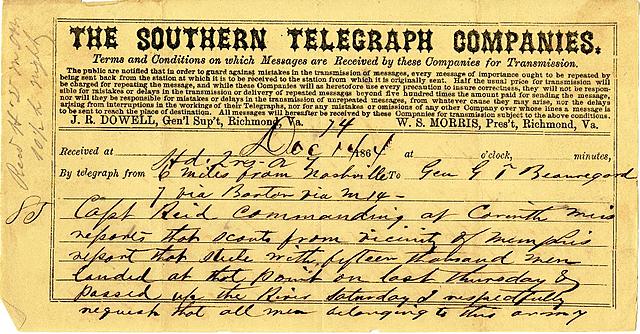 THE SOUTHERN TELEGRAPH COMPANIES.
Terms and Conditions on which Messages are Received by these Companies for Transmission.
The public are notified that in order to guard against mistakes in the transmission of messages, every message of importance ought to be repeated by
being sent back from the station at which it is to be received to the station from which it is originally sent. Half the usual price for transmission will
be charged for repeating the message, and while these Companies will as heretofore use every precaution to insure correctness, they will not be respon-
sible for mistakes or delays in the transmission or delivery of repeated messages beyond five hundred times the amount paid for sending the message,
nor will they be responsible for mistakes or delays in the transmission of unrepeated messages, from whatever cause they may arise, nor the delays
arising from interruptions in the working of their Telegraphs, nor for any mistakes or omissions of any other Company over whose lines a message is
to be sent to reach the place of destination. All messages will hereafter be received by these Companies for transmission subject to the above conditions.
J. R. DOWELL, Gen'l Sup't, Richmond, Va. 74 W. S. MORRIS, Pres't, Richmond, Va.
Received at Dec 14 1864 at o'clock, minutes,
Hd. Qrs.
By telegraph from 6 miles from Nashville To Gen G T Beauregard
7 via Barton via M 14
Capt Reid commanding at Corinth Miss
reports that scouts from vicinity of Memphis
report that with fifteen thousand men
landed at that point on last Thursday &
passed up the River Saturday I respectfully
request that all men belonging to this army
85